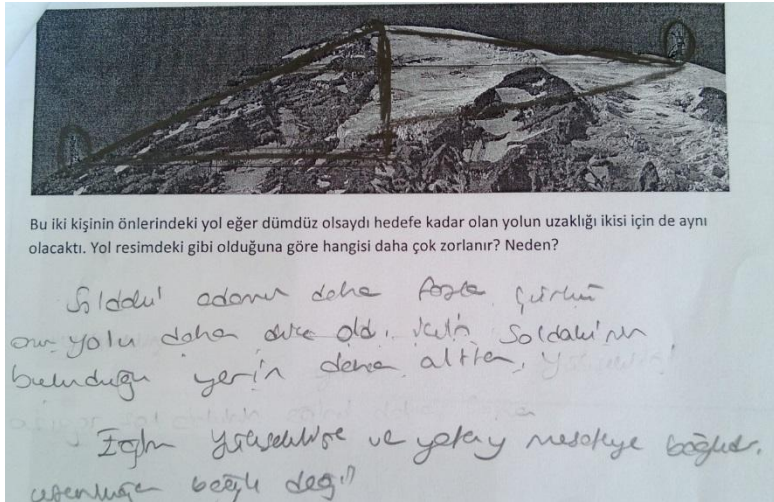 Bu iki kişinin önlerindeki yol eğer dümdüz olsaydı hedefe kadar olan yolun uzaklığı ikisi için de aynı
olacaktı. Yol resimdeki gibi olduğuna göre hangisi daha çok zorlanır? Neden?
Soldaki adamın daha fazla çünkü
onun yolu daha dik old. için Soldakinin
bulunduğu yerin daha alttan,
Eğim yüksekliğe ve yatay mesafeye bağlıdır.
uzunluğa bağlı değil